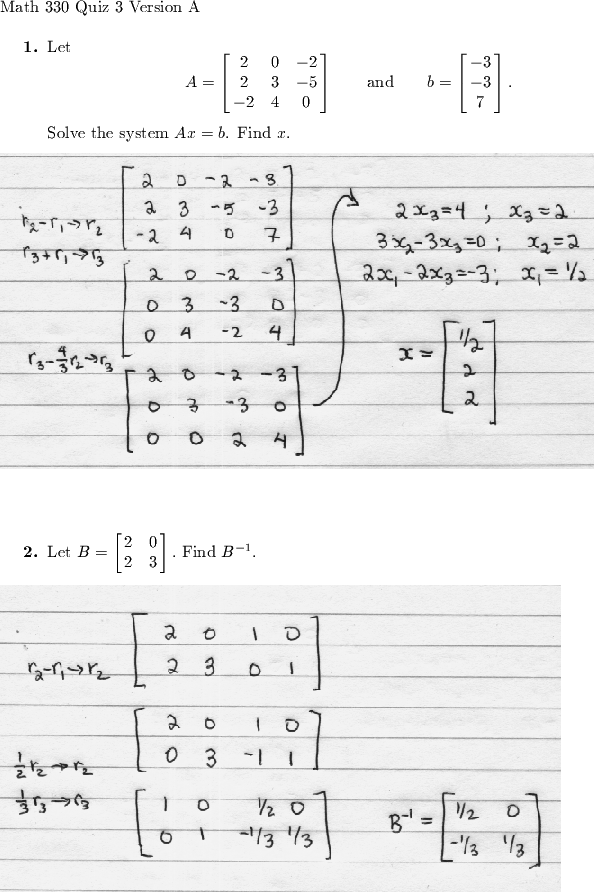 Math 330 Quiz 3 Version A
1. Let
A = [ 2 0 −2
2 3 −5
−2 4 0 ] and b = [ −3
−3
7 ] .
Solve the system Ax = b. Find x.
[ 2 0 -2 -3
2 3 -5 -3
-2 4 0 7 ]
r₂-r₁→r₂
r₃+r₁→r₃
[ 2 0 -2 -3
0 3 -3 0
0 4 -2 4 ]
r₃-4/3r₂→r₃
[ 2 0 -2 -3
0 3 -3 0
0 0 2 4 ]
2x₃=4 ; x₃=2
3x₂-3x₃=0 ; x₂=2
2x₁-2x₃=-3; x₁=1/2
x = [ 1/2
2
2 ]
2. Let B = [ 2 0
2 3 ] . Find B⁻¹.
[ 2 0 1 0
2 3 0 1 ]
r₂-r₁→r₂
[ 2 0 1 0
0 3 -1 1 ]
1/2 r₂→r₂
1/3 r₃→r₃
[ 1 0 1/2 0
0 1 -1/3 1/3 ]
B⁻¹ = [ 1/2 0
-1/3 1/3 ]